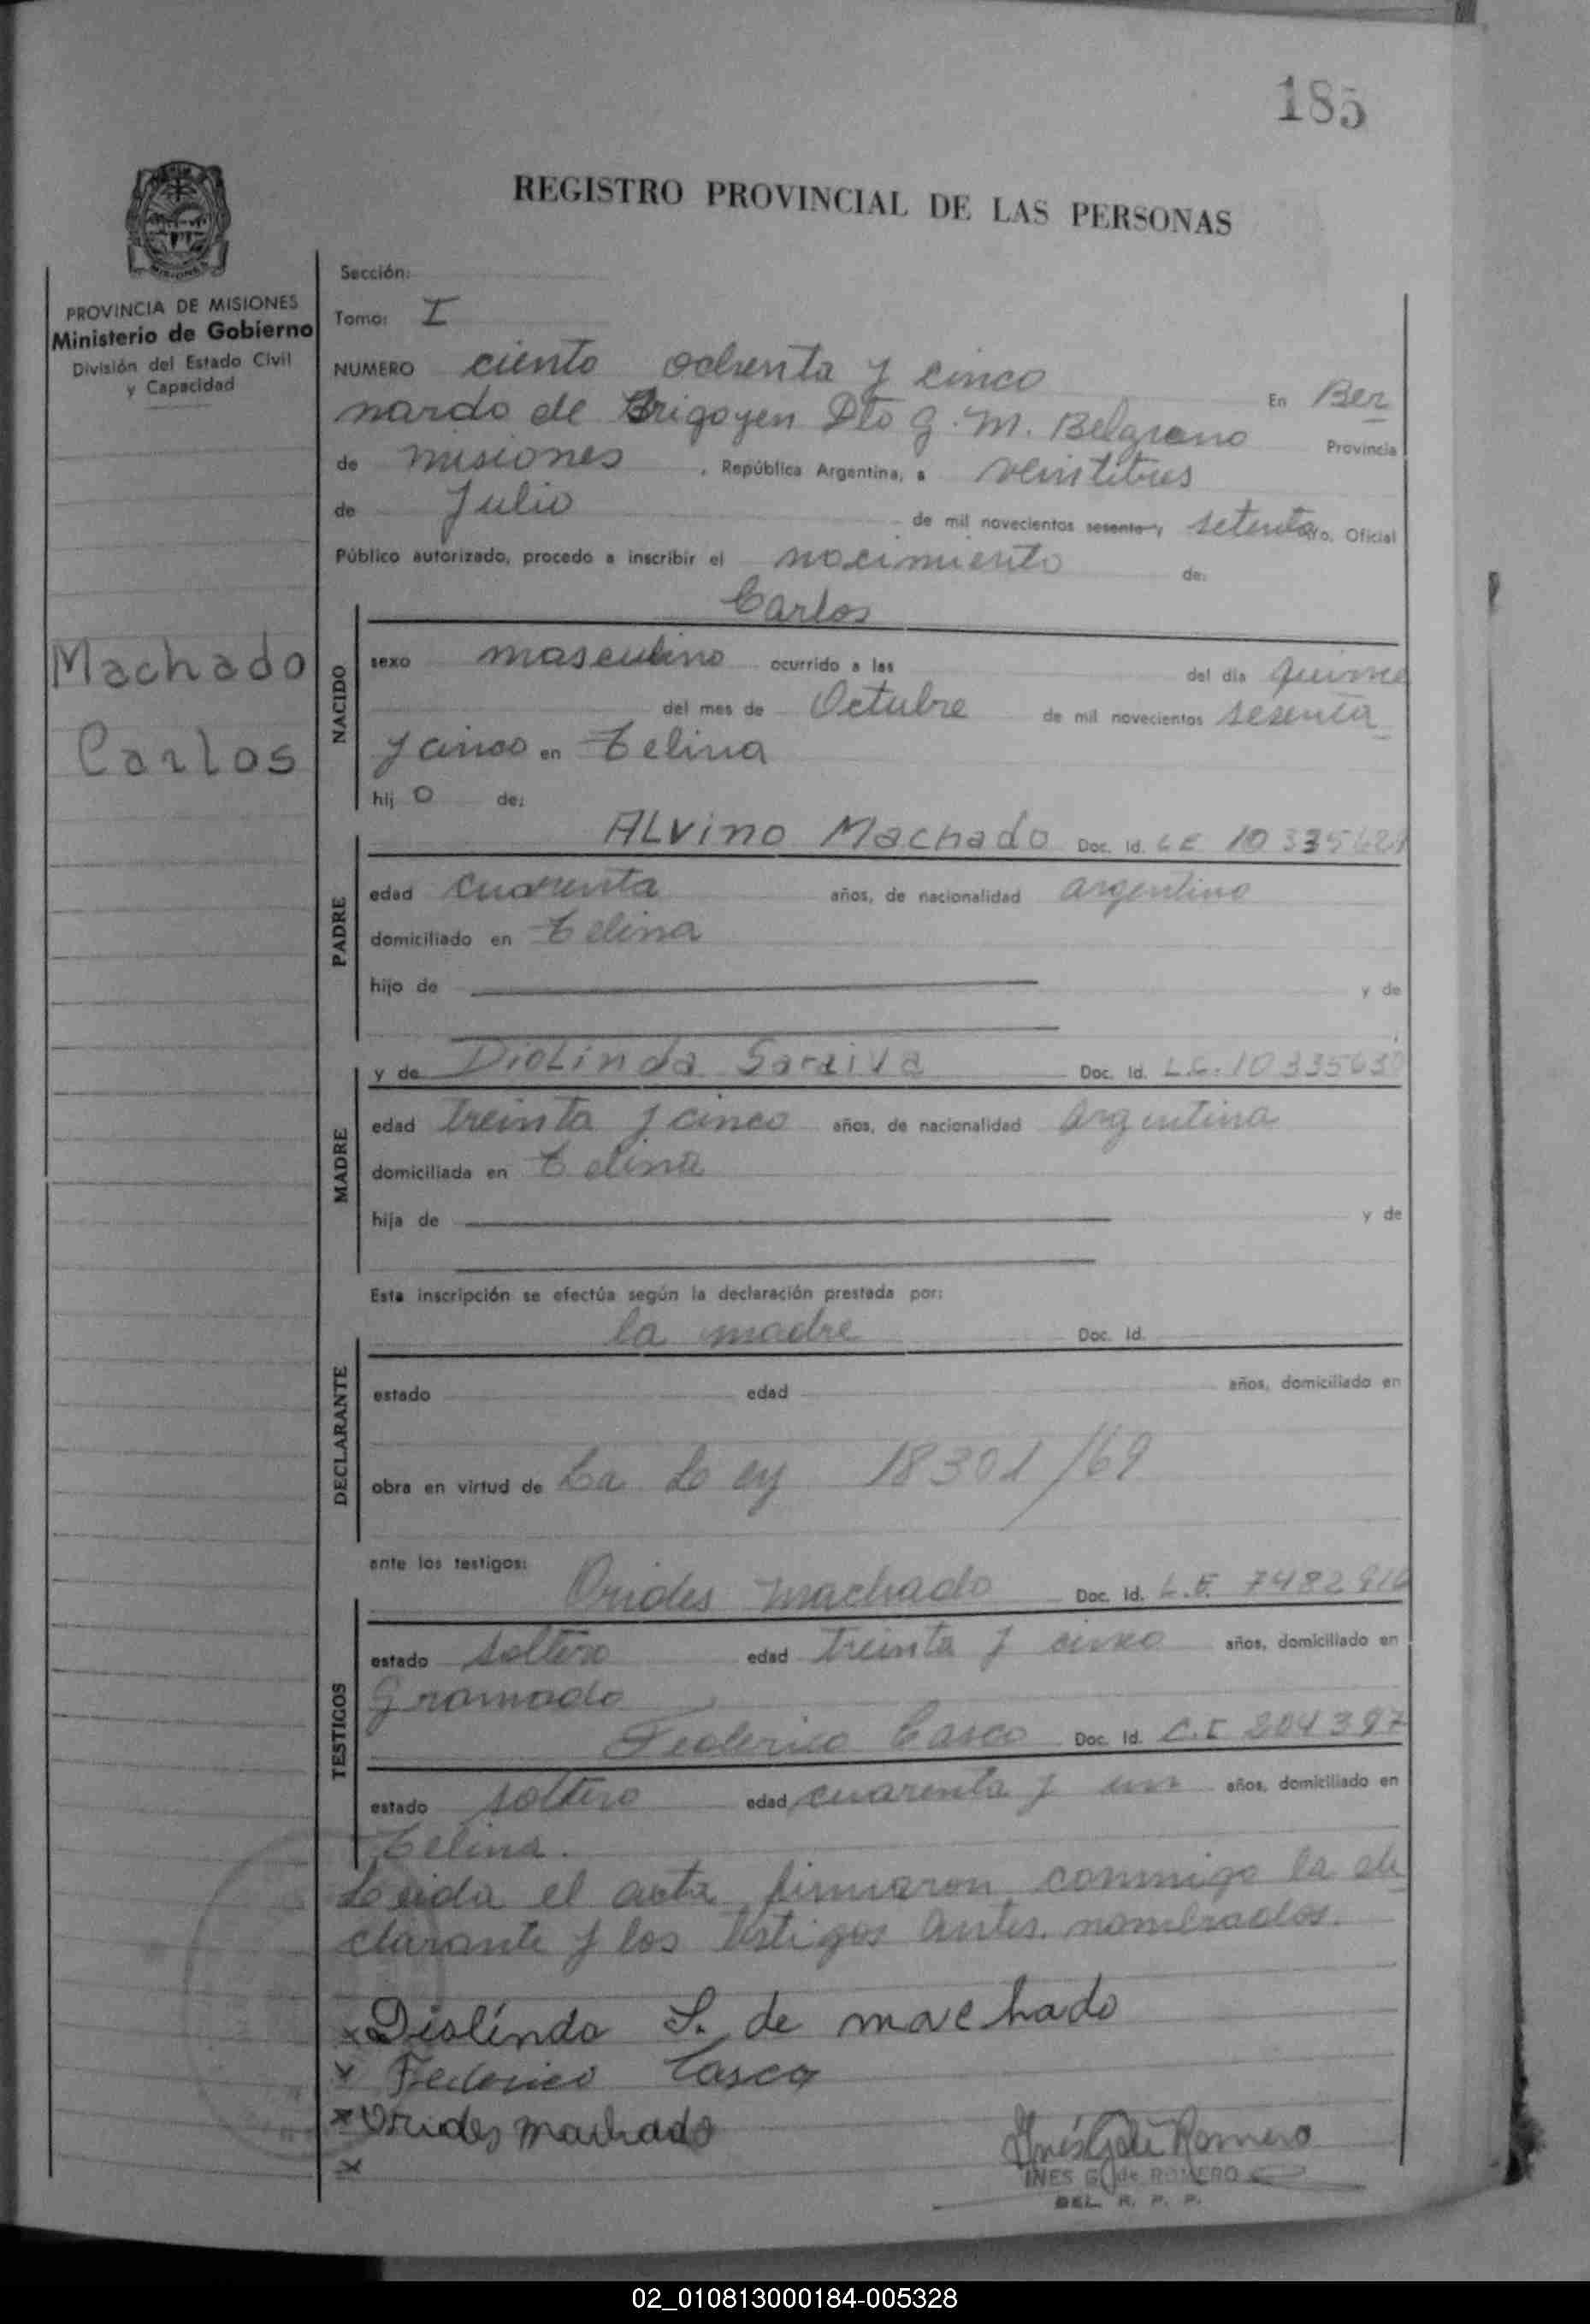 185
REGISTRO PROVINCIAL DE LAS PERSONAS
MISIONES
PROVINCIA DE MISIONES
Ministerio de Gobierno
División del Estado Civil
y Capacidad
Machado
Carlos
Sección:
Tomo: I
NUMERO ciento ochenta y cinco En Ber
nardo de Brigoyen Dto G. M. Belgrano Provincia
de misiones, República Argentina, a veintitres
de Julio de mil novecientos sesenta y setenta Yo, Oficial
Público autorizado, procedo a inscribir el nacimiento de:
Carlos
NACIDO
sexo masculino ocurrido a las del día quince
del mes de Octubre de mil novecientos sesenta
y cinco en Celina
hij o de:
ALvino Machado Doc. Id. L E
PADRE
edad cuarenta años, de nacionalidad argentino
domiciliado en Celina
hijo de y de
y de DioLinda Saraiva Doc. Id. L.C.
MADRE
edad treinta y cinco años, de nacionalidad Argentina
domiciliada en Celina
hija de y de
Esta inscripción se efectúa según la declaración prestada por:
la madre Doc. Id.
DECLARANTE
estado edad años, domiciliado en
obra en virtud de La Ley 18301/69
ante los testigos:
Orides Machado Doc. Id. L.E.
TESTIGOS
estado soltero edad treinta y cinco años, domiciliado en
Gramado
Federico Casco Doc. Id. C.I 204397
estado soltero edad cuarenta y un años, domiciliado en
Celina.
Leida el acta firmaron conmigo la de
clarante y los testigos antes nombrados.
x Diolinda S. de machado
x Federico Casco
x Orides machado
x
Inés G de Romero
INES G. de ROMERO
DEL. R. P. P.
02_010813000184-005328